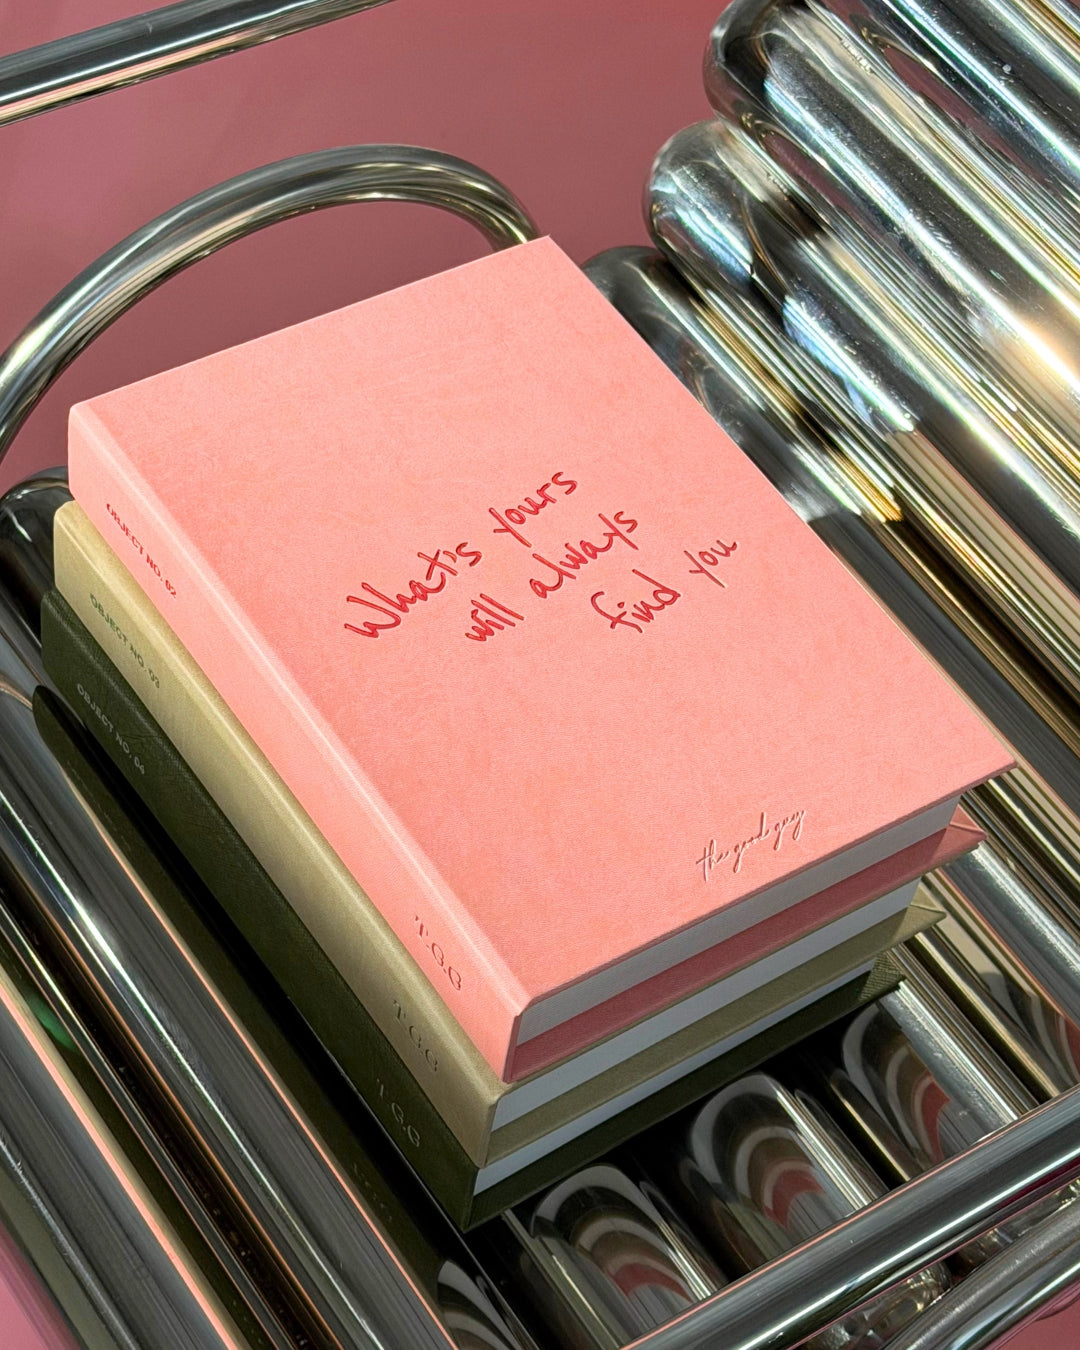 What's yours
will always
find you
the good guy
OBJECT NO. 02
T.G.G
OBJECT NO. 03
T.G.G
OBJECT NO. 04
T.G.G